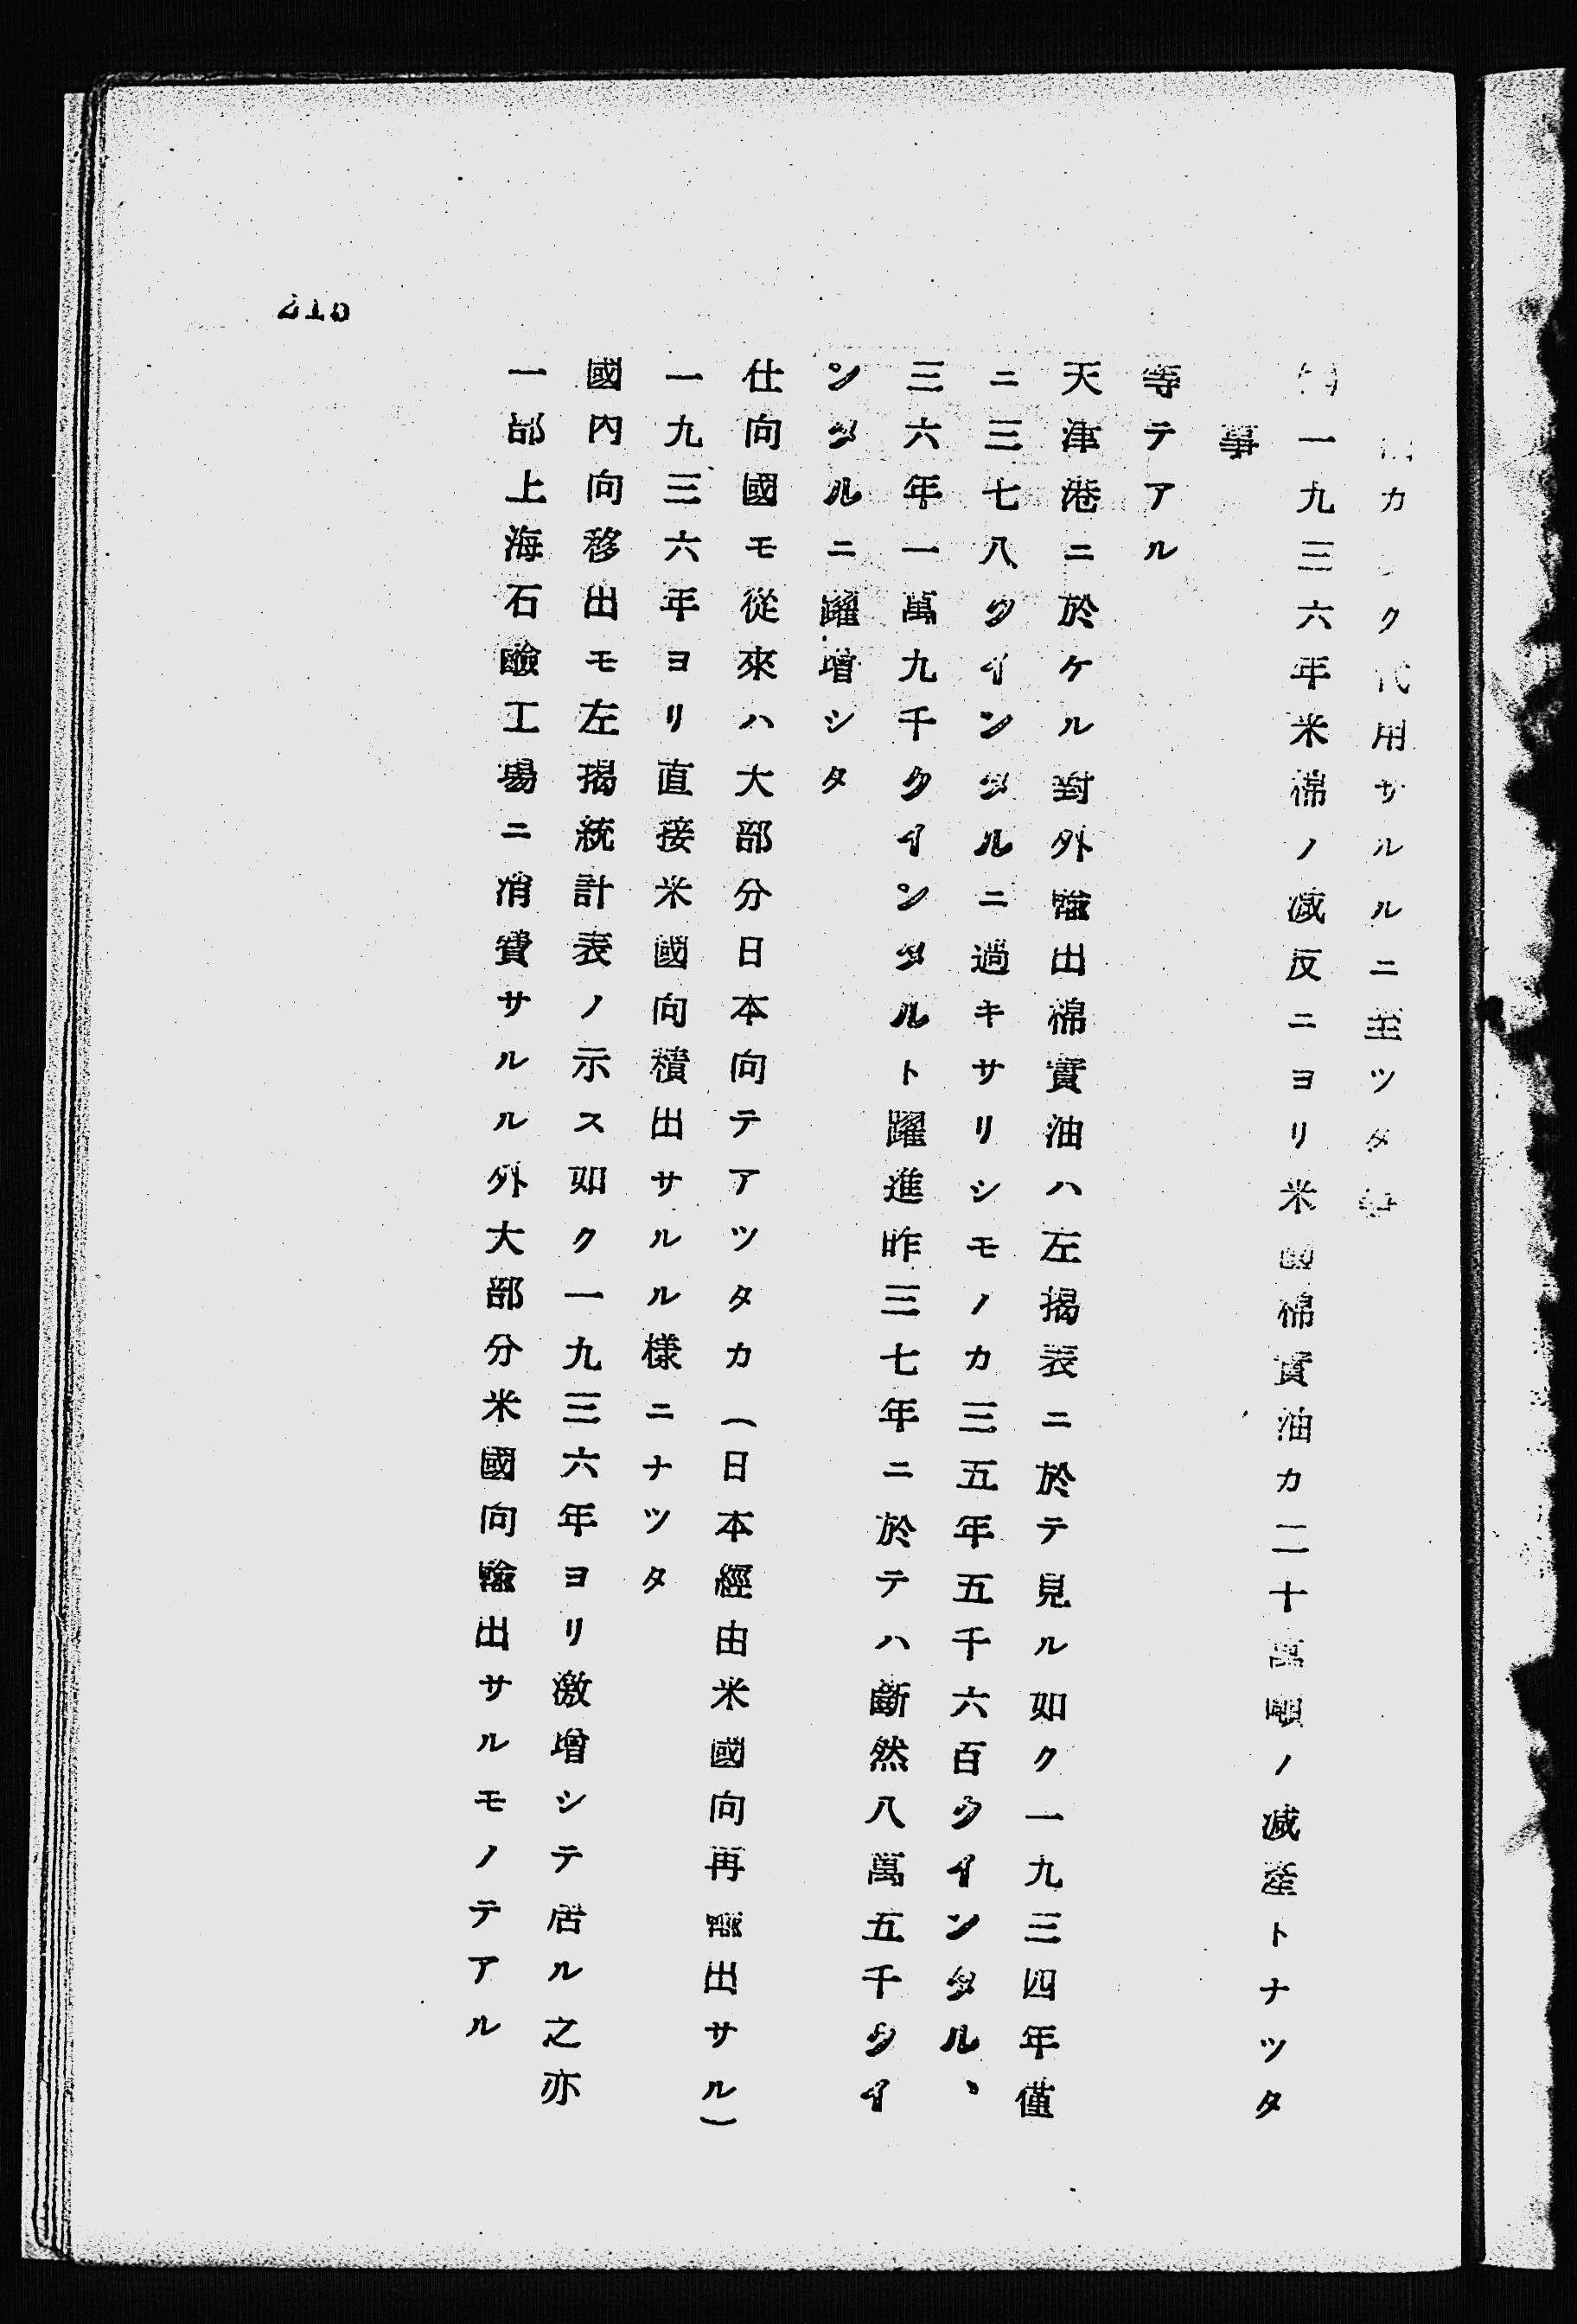 カク代用サルルニ至ツタ事
一九三六年米棉ノ減反ニヨリ米國棉實油カ二十萬噸ノ減産トナツタ
事
等テアル
天津港ニ於ケル對外輸出棉實油ハ左揭表ニ於テ見ル如ク一九三四年僅
ニ三七八クインタルニ過キサリシモノカ三五年五千六百クインタル、
三六年一萬九千クインタルト躍進昨三七年ニ於テハ斷然八萬五千クイ
ンタルニ躍增シタ
仕向國モ從來ハ大部分日本向テアツタカ(日本經由米國向再輸出サル)
一九三六年ヨリ直接米國向積出サルル樣ニナツタ
國內向移出モ左揭統計表ノ示ス如ク一九三六年ヨリ激增シテ居ル之亦
一部上海石鹼工場ニ消費サルル外大部分米國向輸出サルモノテアル
215